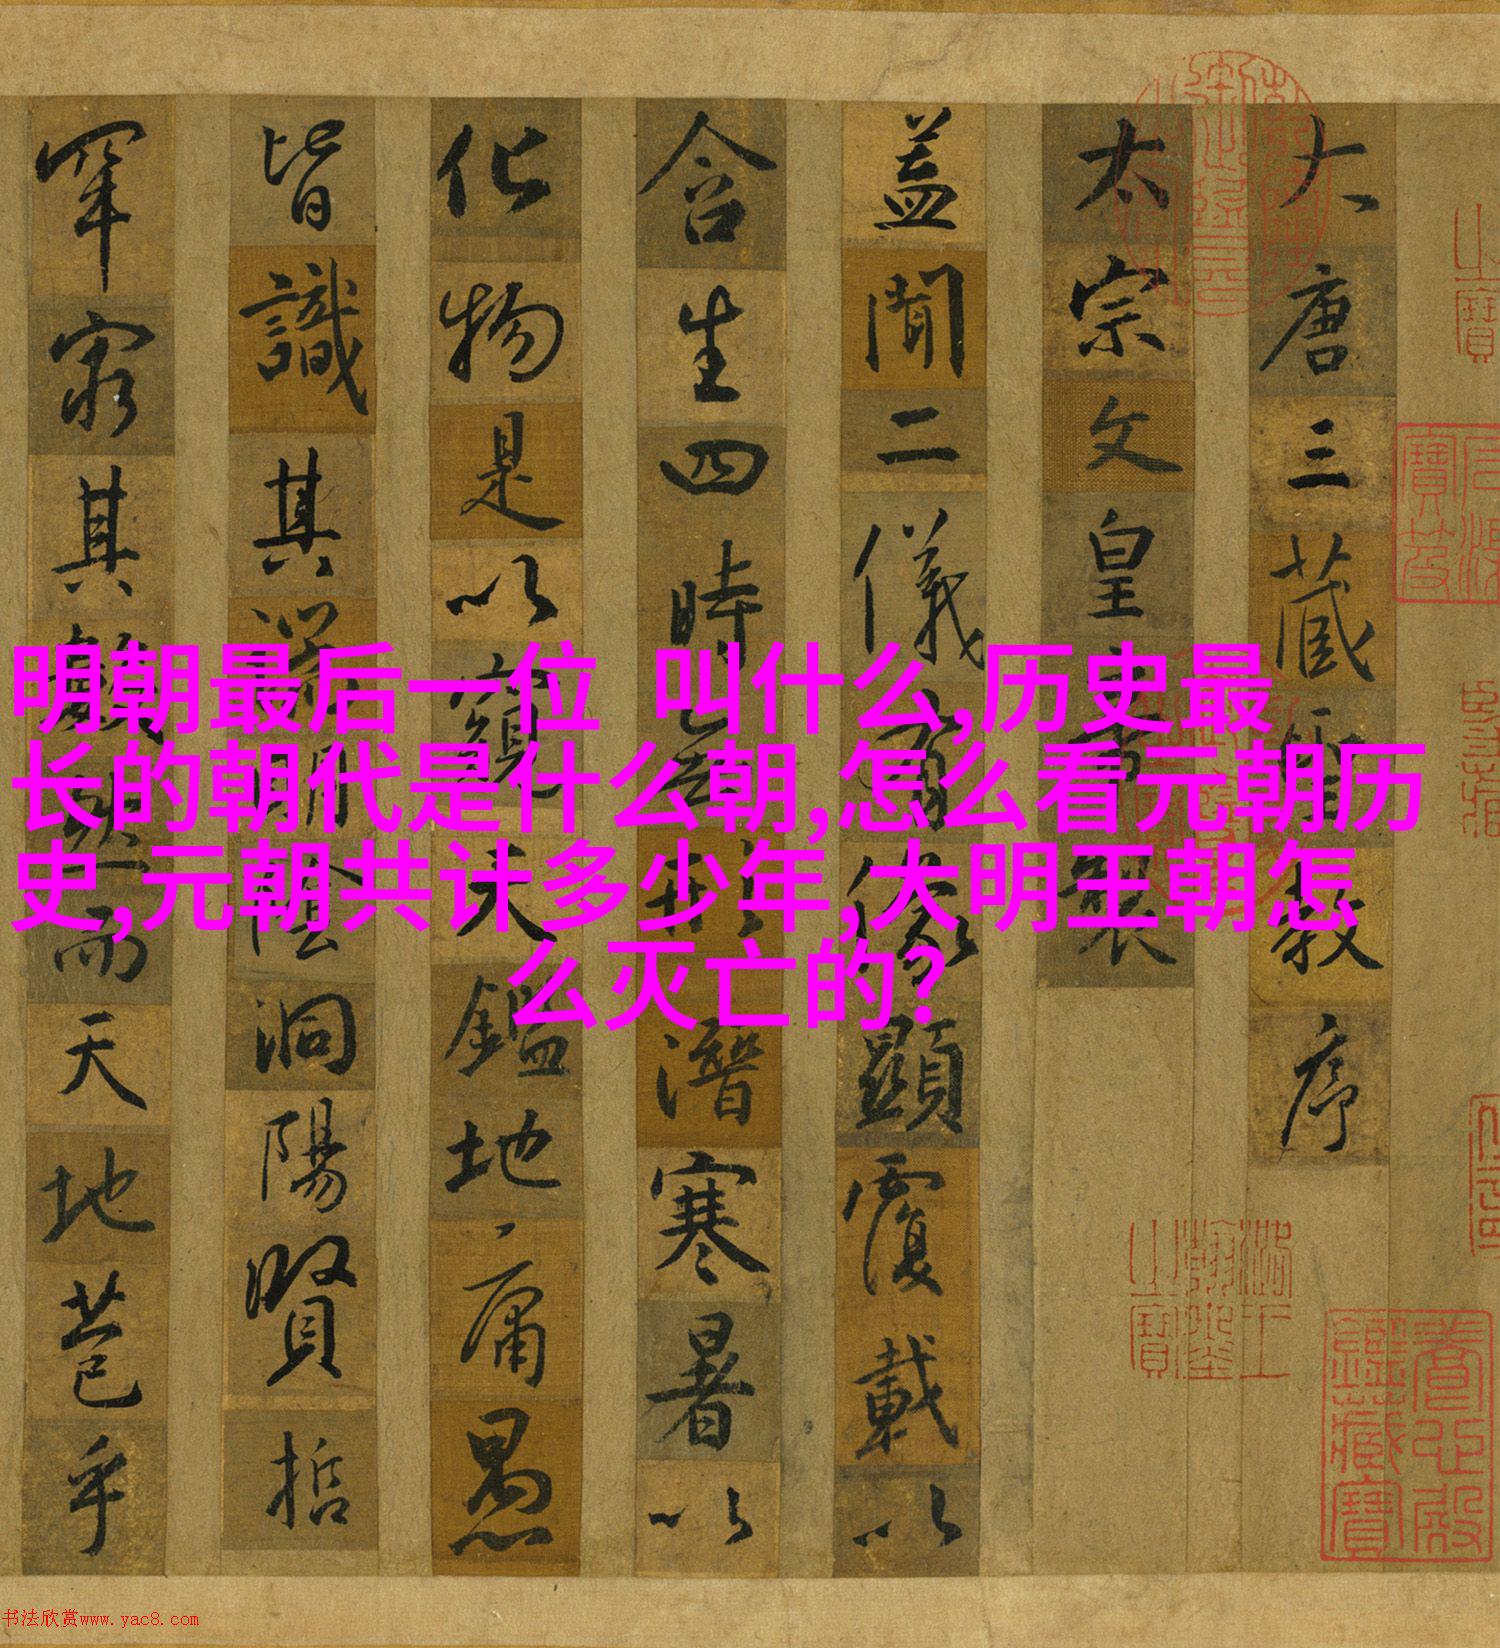 明朝最后一位 叫什么,历史最
长的朝代是什么朝,怎么看元朝历
史,元朝共计多少年,大明王朝怎
么灭亡的?
大唐三藏聖教序
太宗文皇帝製
蓋聞二儀有像顯覆載以
含生四時無形潛寒暑以
化物是以窺天鑑地庸愚
皆識其端明陰洞陽賢哲
罕窮其數然而天地苞乎
書法欣赏www.yac8.com